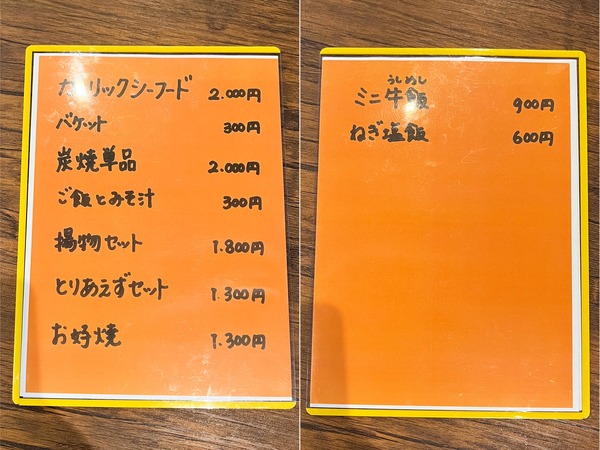 ガーリックシーフード 2.000円
バケット 300円
炭焼単品 2.000円
ご飯とみそ汁 300円
揚物セット 1.800円
とりあえずセット 1.300円
お好焼 1.300円
うしめし
ミニ牛飯 900円
ねぎ塩飯 600円